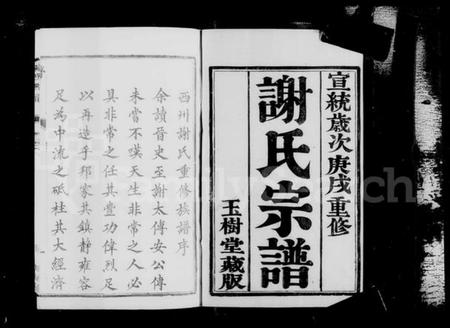 宣統歳次庚戌重修
謝氏宗譜
玉樹堂藏版
西州謝氏重修族譜序
余讀晉史至謝太傅安公傳
未嘗不嘆天生非常之人必
具非常之任其豐功偉烈足
以再造乎邦家其鎮靜雍容
足為中流之砥柱其大經濟